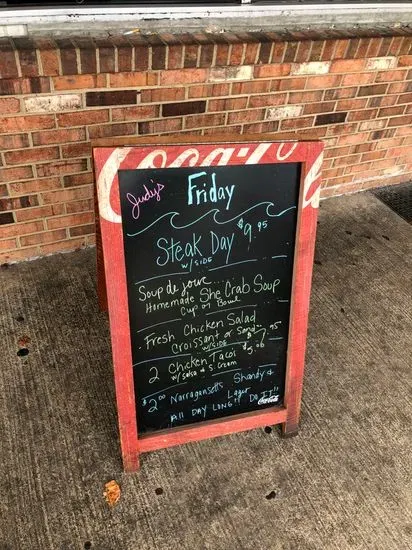 Coca-Co
Judy's
Friday
Steak Day $9.95
w/SIDE
Soup de jour...
Homemade She Crab Soup
Cup or Bowl
Fresh Chicken Salad
Croissant or Sand...
w/SIDE $7.95
2 Chicken Tacos $5.06
w/Salsa & S. Cream
$2.00 Narragansett's Shandy &
Lager
All DAY LONG!! DO IT!!
Coca-Cola